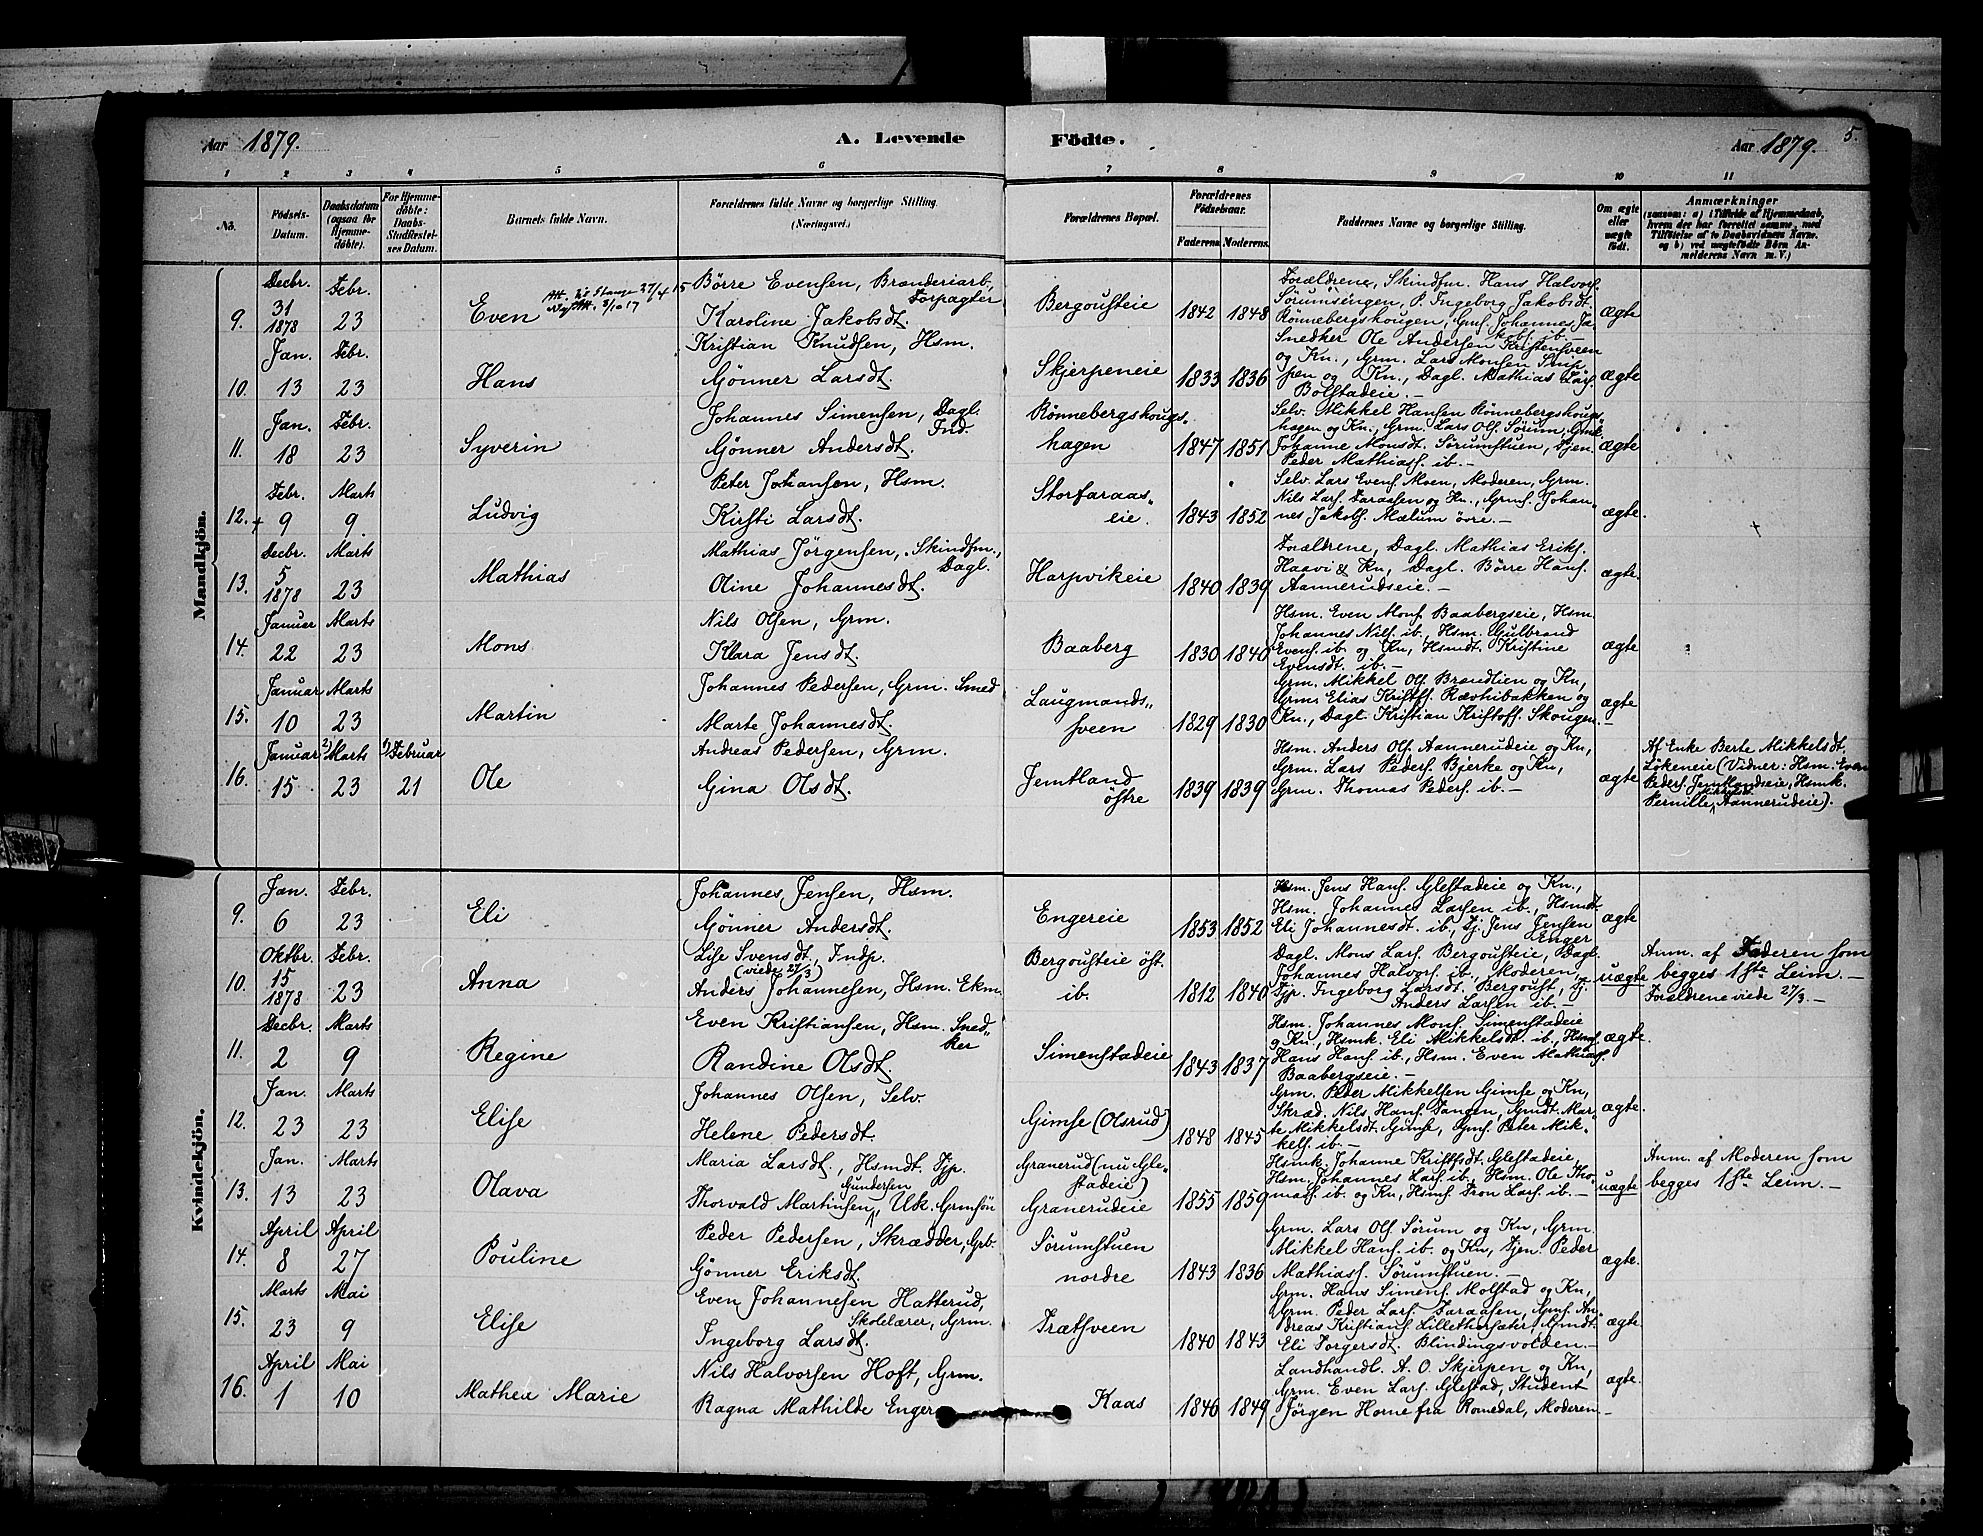 Aar 1879. A. Levende Födte. Aar 1879. 5.
1 2 3 4 5 6 7 8 9 10 11
No. Födsels-Datum. Daabsdatum (ogsaa for Hjemmedöbte). For Hjemmedöbte: Daabs-Stadfæstelses Datum. Barnets fulde Navn. Forældrenes fulde Navne og borgerlige Stilling. (Næringsvei.) Forældrenes Bopæl. Forældrenes Födselsaar. Faderens. Moderens. Faddernes Navne og borgerlige Stilling. Om ægte eller uægte födt. Anmærkninger (saasom: a) i Tilfælde af Hjemmedaab, hvem der har forrettet samme, med Tilföielse af to Daabsvidners Navne, og b) ved uægtefödte Börn Anmelderens Navn m. V.)
Mandkjön.
9. Decbr. 31 1878 Febr. 23 Even
Att. til Stange 27/4 15
Ny Att. 3/10 17
Börre Evensen, Brænderiarb,
Forpagter
Karoline Jakobsdt.
Bergousteie 1842 1848
Forældrene, Skindfm. Hans Halvors.
Sörumsengen, P. Ingeborg Jakobsdt.
Rönnebergskougen, Gmf. Johannes Ja-
kobs. ib. —
ægte
10. Jan. 13 Febr. 23 Hans
Kristian Knudsen, Hsm.
Gönner Larsdt.
Skjerpeneie 1833 1836
Snedker Ole Andersen Kristensveen
og Kn., Grm. Lars Monsen Skjer-
pen og Kn., Dagl. Mathias Lars.
Bolstadeie. —
ægte
11. Jan. 18 Febr. 23 Syverin
Johannes Simensen, Dagl.
Ind.
Gönner Andersdt.
Rönnebergskougs-
hagen 1847 1851
Selv. Mikkel Hansen Rönnebergskougs
hagen og Kn., Grm. Lars Ols. Sörum, Gmk.
Johanne Monsdt. Sörumstuen, Tjen.
Peder Mathiass. ib. —
ægte
12. + Febr. 9 Marts 9. Ludvig
Peter Johansen, Hsm.
Kirsti Larsdt.
Storfaraas-
eie. 1843 1852
Selv. Lars Evens. Moen, Moderen, Grm.
Nils Lars. Faraasen og Kn., Grmf. Johan-
nes Jakobs. Mælum övre. —
ægte. +
13. Decbr. 5 1878 Marts 23 Mathias
Mathias Jörgensen, Skindfm.,
Dagl.
Oline Johannesdt.
Harpvikeie 1840 1839
Forældrene, Dagl. Mathias Eriks.
Haavi & Kn, Dagl. Börre Hans.
Aannerudseie. —
ægte.
14. Januar 22 Marts 23 Mons
Nils Olsen, Grm.
Klara Jensdt.
Baaberg 1830 1840
Hsm. Even Mons. Baabergseie, Hsm.
Johannes Nils. ib., Hsm. Gulbrand
Evens. ib. og Kn, Hsmdt. Kristine
Evensdt. ib. —
ægte
15. Januar 10 Marts 23 Martin
Johannes Pedersen, Grm. Smed
Marte Johannesdt.
Laugmands-
sveen 1829 1830
Grm. Mikkel Ols. Brændlien og Kn,
Grm. Elias Kristoffs. Rævhibakken og
Kn., Dagl. Kristian Kristoff. Skougen. —
ægte
16. Januar 15 2) Marts 23 1) Februar 21 Ole
Andreas Pedersen, Grm.
Gina Olsdt.
Jemtland
östre 1839 1839
Hsm. Anders Ols. Aannerudeie og Kn,
Grm. Lars Peders. Bjerke og Kn,
Grm. Thomas Peders. ib. —
ægte
Af Enke Berte Mikkelsdt.
Lökeneie (Vidner: Hsm. Even
Peders. Jemtlandseie, Hsmk.
Pernille Aannerudeie).
Kvindekjön.
9. Jan. 6 Febr. 23 Eli
Johannes Jensen, Hsm.
Gönner Andersdt.
Engereie 1853 1852
Hsm. Jens Hans. Glestadeie og Kn,
Hsm. Johannes Larsen ib., Hsmdt
Eli Johannesdt. ib., Tj. Jens Jensen
Enger
ægte
10. Oktbr. 15 1878 Febr. 23 Anna
Lise Svensdt, Indp.
(viede 27/3)
Anders Johannesen, Hsm. Ekm.
Bergousteie öst.
ib. 1812 1840
Dagl. Mons Lars. Bergousteie, Dagl.
Johannes Halvors. ib., Moderen,
Tjp. Ingeborg Larsdt. Bergoust, Tj.
Anders Larsen ib. —
uægte
Anm. af Faderen som
begges 1ste Leim. —
Forældrene viede 27/3. —
11. Decbr. 2 Marts 9 Regine
Even Kristiansen, Hsm. Sned-
ker
Randine Olsdt.
Simenstadeie 1843 1837
Hsm. Johannes Mons. Simenstadeie
og Kn., Hsmk. Eli Mikkelsdt. ib., Hsmf.
Hans Hans. ib., Hsm. Even Mathias.
Baabergseie. —
ægte.
12. Jan. 23 Marts 23 Elise
Johannes Olsen, Selv.
Helene Pedersdt.
Gimse (Olsrud) 1848 1845
Grm. Peder Mikkelsen Gimse og Kn,
Skræd. Nils Hans. Tangen, Gmdt. Mar-
te Mikkelsdt. Gimse, Gmf. Peter Mik-
kels. ib. —
ægte.
13. Jan. 13 Marts 23 Olava
Maria Larsdt., Hsmdt. Tjp.
Gundersen
Thorvald Martinsen, Uk. Grmsön
Granerud (nu Gle-
stadeie)
Granerudeie 1855 1859
Hsmk. Johanne Kristfsdt. Glestadeie,
Hsm. Johannes Lars. ib., Hsm. Ole Tho-
mas. ib. og Kn, Hsmf. Tron Lars. ib. —
uægte
Anm. af Moderen som
begges 1ste Leim. —
14. April 8 April 27 Pouline
Peder Pedersen, Skrædder, Grb.
Gönner Eriksdt.
Sörumstuen
nordre 1843 1836
Grm. Lars Ols. Sörum og Kn, Grm.
Mikkel Hans. ib. og Kn, Tjen. Peder
Mathiass. Sörumstuen. —
ægte.
15. Marts 23 Mai 9 Elise
Even Johannesen Hatterud,
Skolelærer, Grm.
Ingeborg Larsdt.
Trætsveen 1840 1843
Grm. Hans Simens. Molstad og Kn,
Grm. Peder Lars. Faraasen, Gmf. An-
dreas Kristians. Lillethorsæter, Gmdt.
Eli Torgersdt. Blindingsvolden. —
ægte
16. April 1 Mai 10 Mathea Marie
Nils Halvorsen Hoft, Grm.
Ragna Mathilde Enger
Kaas 1846 1849
Landhandl. A. O. Skjerpen og Kn,
Grm. Even Lars. Glestad, Student
Jörgen Horne fra Romedal, Moderen —
ægte.